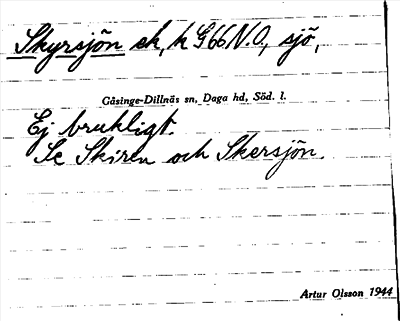 Skyrsjön ek, k G 66 N.O., sjö,
Gåsinge-Dillnäs sn, Daga hd, Söd. l.
Ej brukligt.
Se Skiren och Skersjön.
Artur Olsson 1944